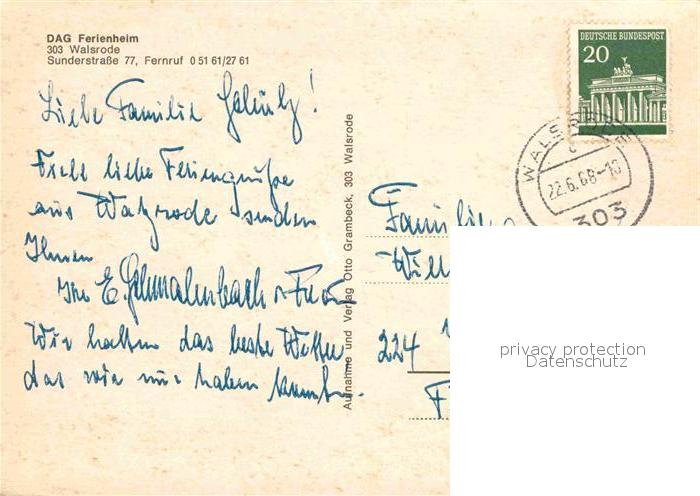 DAG Ferienheim
303 Walsrode
Sunderstraße 77, Fernruf 0 51 61/27 61
Liebe Familie
liebe Feriengrüße
aus Walsrode senden
Ihnen
Ihre E. Schmalenbach u. Frau
Wir hatten das beste Wetter
das wir nur haben konnten.
Aufnahme und Verlag Otto Grambeck, 303 Walsrode
DEUTSCHE BUNDESPOST
20
WALSRODE
22.6.68-18
303
Familie
224
privacy protection
Datenschutz